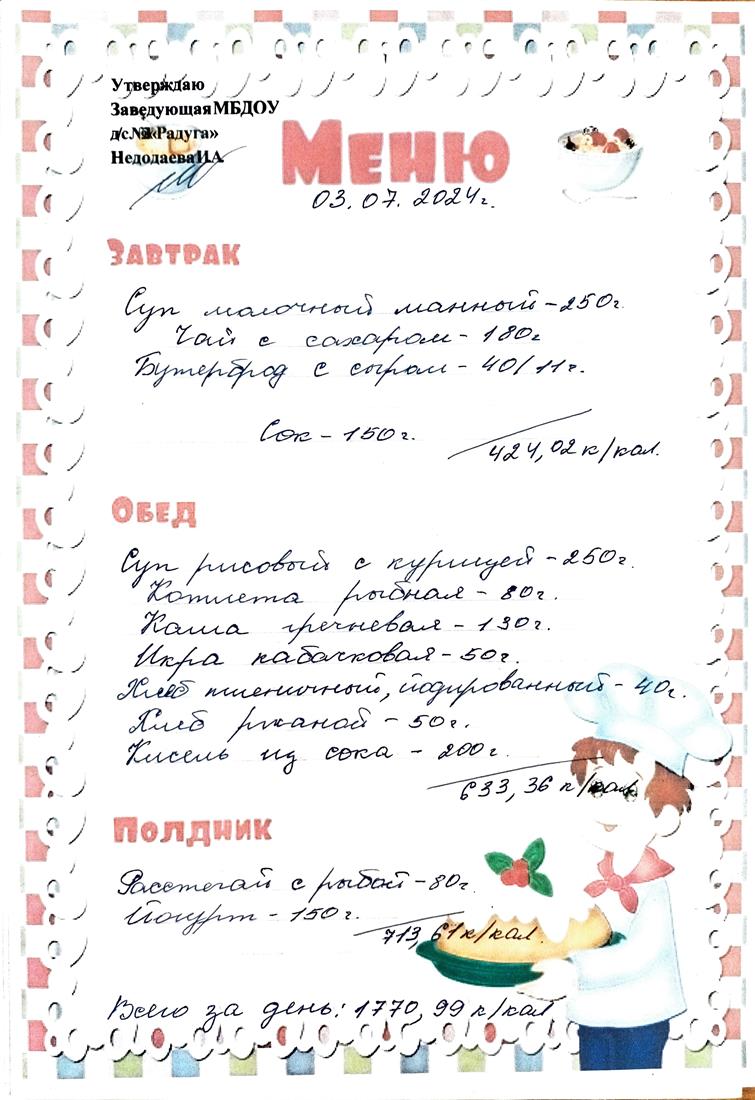 Утверждаю
Заведующая МБДОУ
д/с «Радуга»
Недодаева И.А.
МЕНЮ
03.07.2024г.
ЗАВТРАК
Суп молочный манный - 250г.
Чай с сахаром - 180г
Бутерброд с сыром - 40/11г.
Сок - 150г.
424,02 к/кал.
ОБЕД
Суп рисовый с курицей - 250г.
Котлета рыбная - 80г.
Каша гречневая - 130г.
Икра кабачковая - 50г.
Хлеб пшеничный, йодированный - 40г.
Хлеб ржаной - 50г.
Кисель из сока - 200г.
633,36 к/кал.
ПОЛДНИК
Расстегай с рыбой - 80г.
Йогурт - 150г.
713,61 к/кал.
Всего за день: 1770,99 к/кал